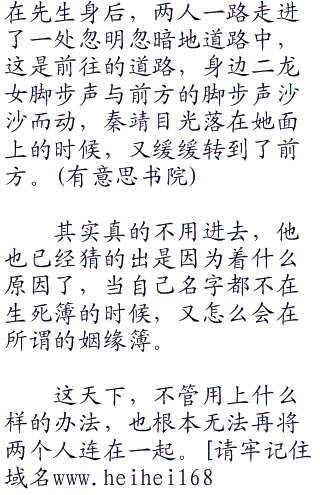 在先生身后，两人一路走进
了一处忽明忽暗地道路中，
这是前往的道路，身边二龙
女脚步声与前方的脚步声沙
沙而动，秦靖目光落在她面
上的时候，又缓缓转到了前
方。(有意思书院)
其实真的不用进去，他
也已经猜的出是因为着什么
原因了，当自己名字都不在
生死簿的时候，又怎么会在
所谓的姻缘簿。
这天下，不管用上什么
样的办法，也根本无法再将
两个人连在一起。[请牢记住
域名www.heihei168